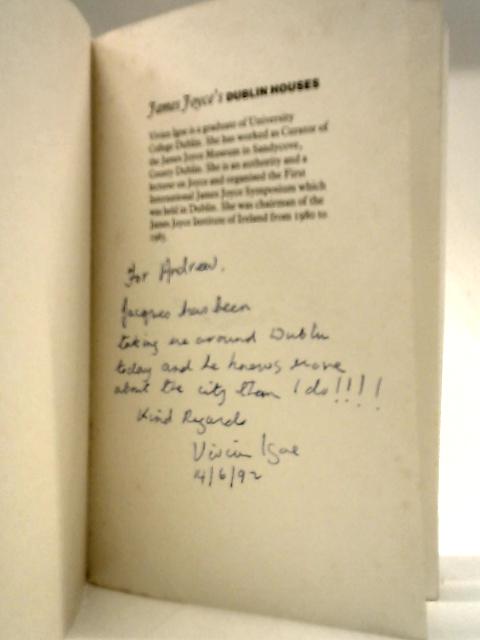 James Joyce's DUBLIN HOUSES
Vivien Igoe is a graduate of University
College Dublin. She has worked as Curator of
the James Joyce Museum in Sandycove,
County Dublin. She is an authority and a
lecturer on Joyce and organised the First
International James Joyce Symposium which
was held in Dublin. She was chairman of the
James Joyce Institute of Ireland from 1980 to
1985.
For Andrew,
Jacques has been
taking me around Dublin
today and he knows more
about the city than I do!!!!
Kind Regards
Vivien Igoe
14/6/92